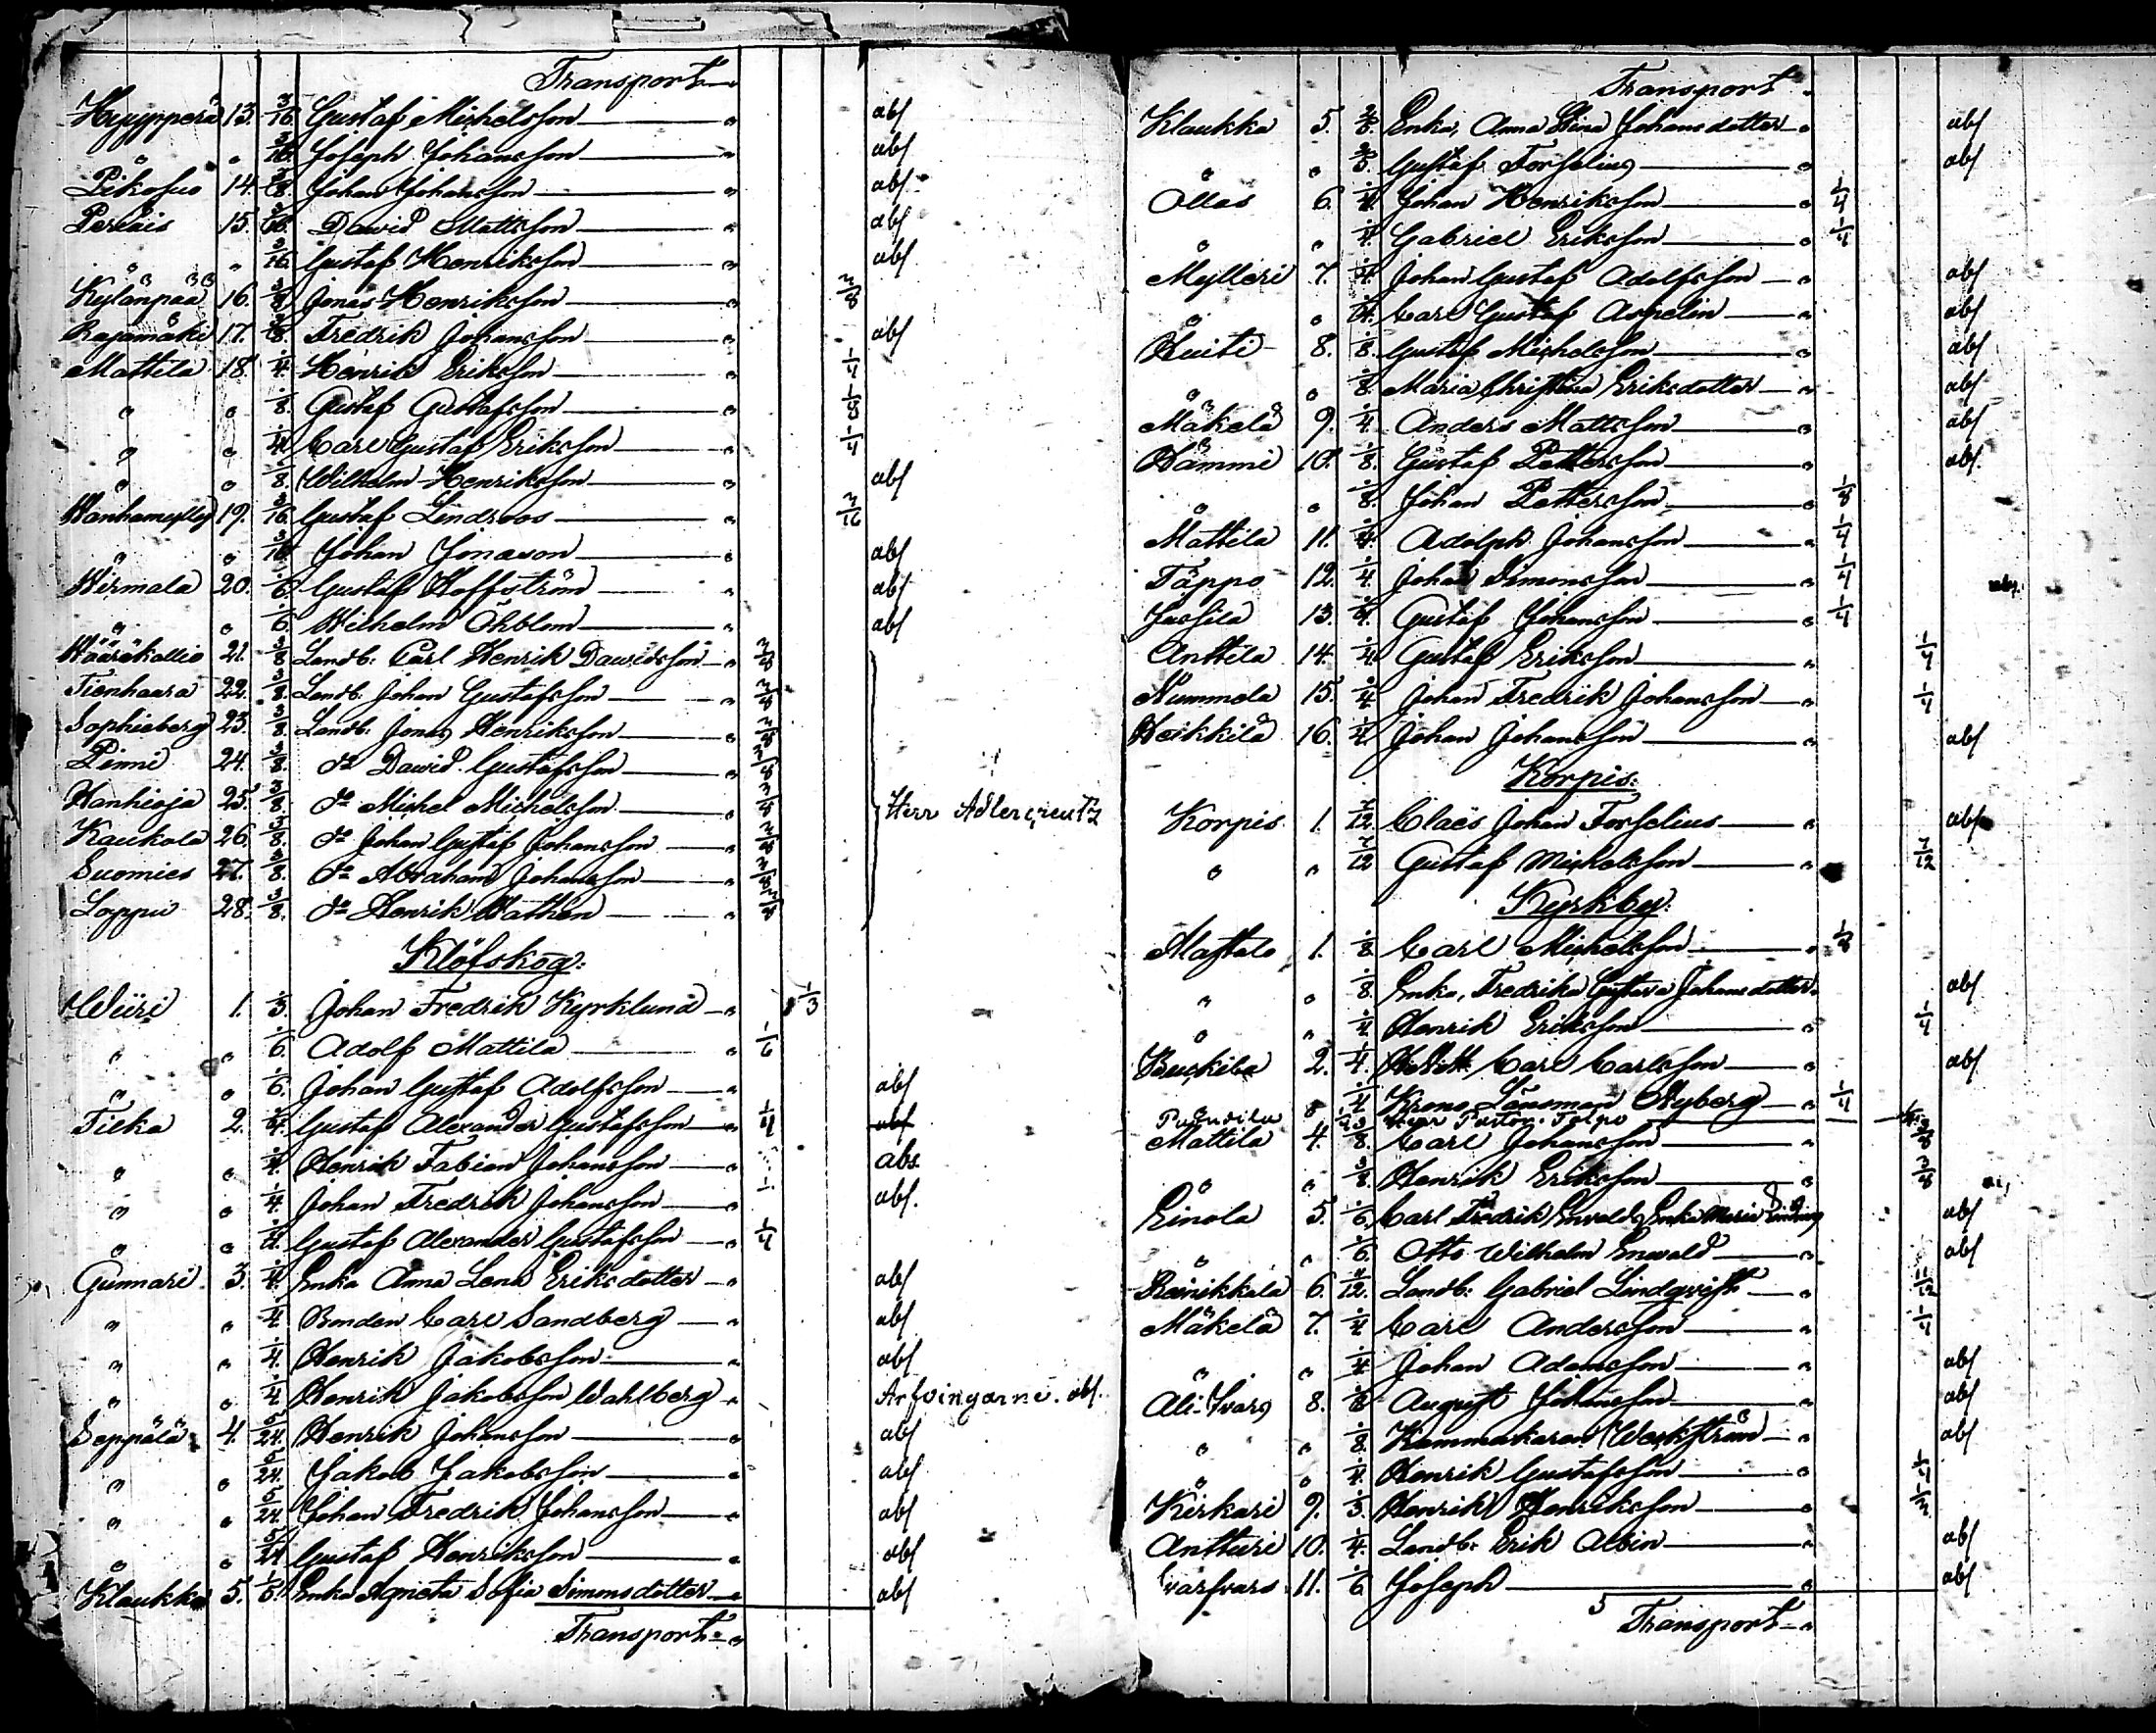 Transport
13. 3/16 Gustaf Michelsson abs
" " 3/16 Joseph Johansson abs
14. 3/8 Johan Johansson abs
15. 3/16 David Mattsson abs
" " 3/16 Gustaf Henriksson abs
Kylänpää 16. 3/8 Jonas Henriksson 3/8
Rajamäki 17. 3/8 Fredrik Johansson abs
Mattila 18. 1/4 Henrik Eriksson 1/4
" " 1/8 Gustaf Gustafsson 1/8
" " 1/4 Carl Gustaf Eriksson 1/4
" " 1/8 Wilhelm Henriksson abs
Wanhamylly 19. 3/16 Gustaf Lindroos 3/16
" " 3/16 Johan Jonason abs
Wirmala 20. 1/6 Gustaf Hoffström abs
" " 1/6 Wilhelm Öhblom abs
Wääräkallio 21. 3/8 Landb: Carl Henrik Dawidsson 3/8
Tienhaara 22. 3/8 Landb. Johan Gustafsson 3/8
Sophieberg 23. 3/8 Landb: Jonas Henriksson 3/8
Pinni 24. 3/8 do David Gustafsson 3/8
Hanhioja 25. 3/8 do Michel Michelsson 3/8 Herr Adlercreutz
Kaukola 26. 3/8 do Johan Gustaf Johansson 3/8
Suomies 27. 3/8 do Abraham Johansson 3/8
Loppi 28. 3/8 do Henrik Wathen 3/8
Klöfskog:
Wiiri 1. 1/3 Johan Fredrik Kyrklund 1/3
" " 1/6 Adolf Mattila 1/6
" " 1/6 Johan Gustaf Adolfsson abs
Tilka 2. 1/4 Gustaf Alexander Gustafsson 1/4 abs
" " 1/4 Henrik Fabian Johansson abs
" " 1/4 Johan Fredrik Johansson abs.
" " 1/4 Gustaf Alexander Gustafsson 1/4
Gunnari 3. 1/4 Enka Anna Lena Eriksdotter abs
" " 1/4 Bonden Carl Sandberg abs
" " 1/4 Henrik Jakobsson abs
" " 1/4 Henrik Jakobsson Wahlberg Arfvingarne. abs.
Seppälä 4. 5/24 Henrik Johansson abs
" " 5/24 Jakob Jakobsson abs
" " 5/24 Johan Fredrik Johansson abs
" " 5/24 Gustaf Henriksson abs
Klaukka 5. 1/6 Enka Agneta Sofia Simonsdotter abs
Transport
Transport
Klaukka 5. Enka, Anna Stina Johansdotter abs
" " Gustaf Forselius abs
Ollas 6. 1/4 Johan Henriksson 1/4
" " 1/4 Gabriel Eriksson 1/4
Mylleri 7. 1/4 Johan Gustaf Adolfsson abs
" " 1/4 Carl Gustaf Aspelin abs
Huiti 8. 1/8 Gustaf Michelsson abs
" " 1/8 Maria Christina Eriksdotter abs
Mäkelä 9. 1/4 Anders Mattsson abs
Hämmi 10. 1/8 Gustaf Pettersson abs.
" " 1/8 Johan Pettersson 1/8
Mattila 11. 1/4 Adolph Johansson 1/4
Tåppo 12. 1/4 Johan Simonsson 1/4
Jussila 13. 1/4 Gustaf Johansson 1/4
Anttila 14. 1/4 Gustaf Eriksson 1/4
Nummela 15. 1/4 Johan Fredrik Johansson 1/4
Heikkilä 16. 1/4 Johan Johansson abs
Korpis:
Korpis 1. 7/12 Claës Johan Forselius abs
" " 7/12 Gustaf Michelsson 7/12
Kyrkby:
1. 1/8 Carl Michelsson 1/8
" " 1/8 Enka, Fredrika Gustava Johansdotter abs
" " 1/4 Henrik Eriksson 1/4
2. 1/4 Carl Carlsson abs
" 1/4 Krono Länsman Nyberg 1/4
Herr Pastor
Mattila 4. 3/8 Carl Johansson 3/8
" " 3/8 Henrik Eriksson 3/8
Einola 5. 1/6 Carl Fredrik Envald, Enka Maria abs
" " 1/6 Otto Wilhelm Enwald abs
Reinikkala 6. Landb: Gabriel Lindqvist
Mäkelä 7. 1/4 Carl Andersson 1/4
" " 1/4 Johan Adamsson abs
Ali-Ivars 8. 1/8 August Johansson abs
" " 1/8 Kammakaren Weckström abs
" " 1/4 Henrik Gustafsson 1/4
Kirkari 9. Henrik Henriksson
Antturi 10. 1/4 Landb: Erik Albin abs
11. 1/6 Joseph abs
Transport